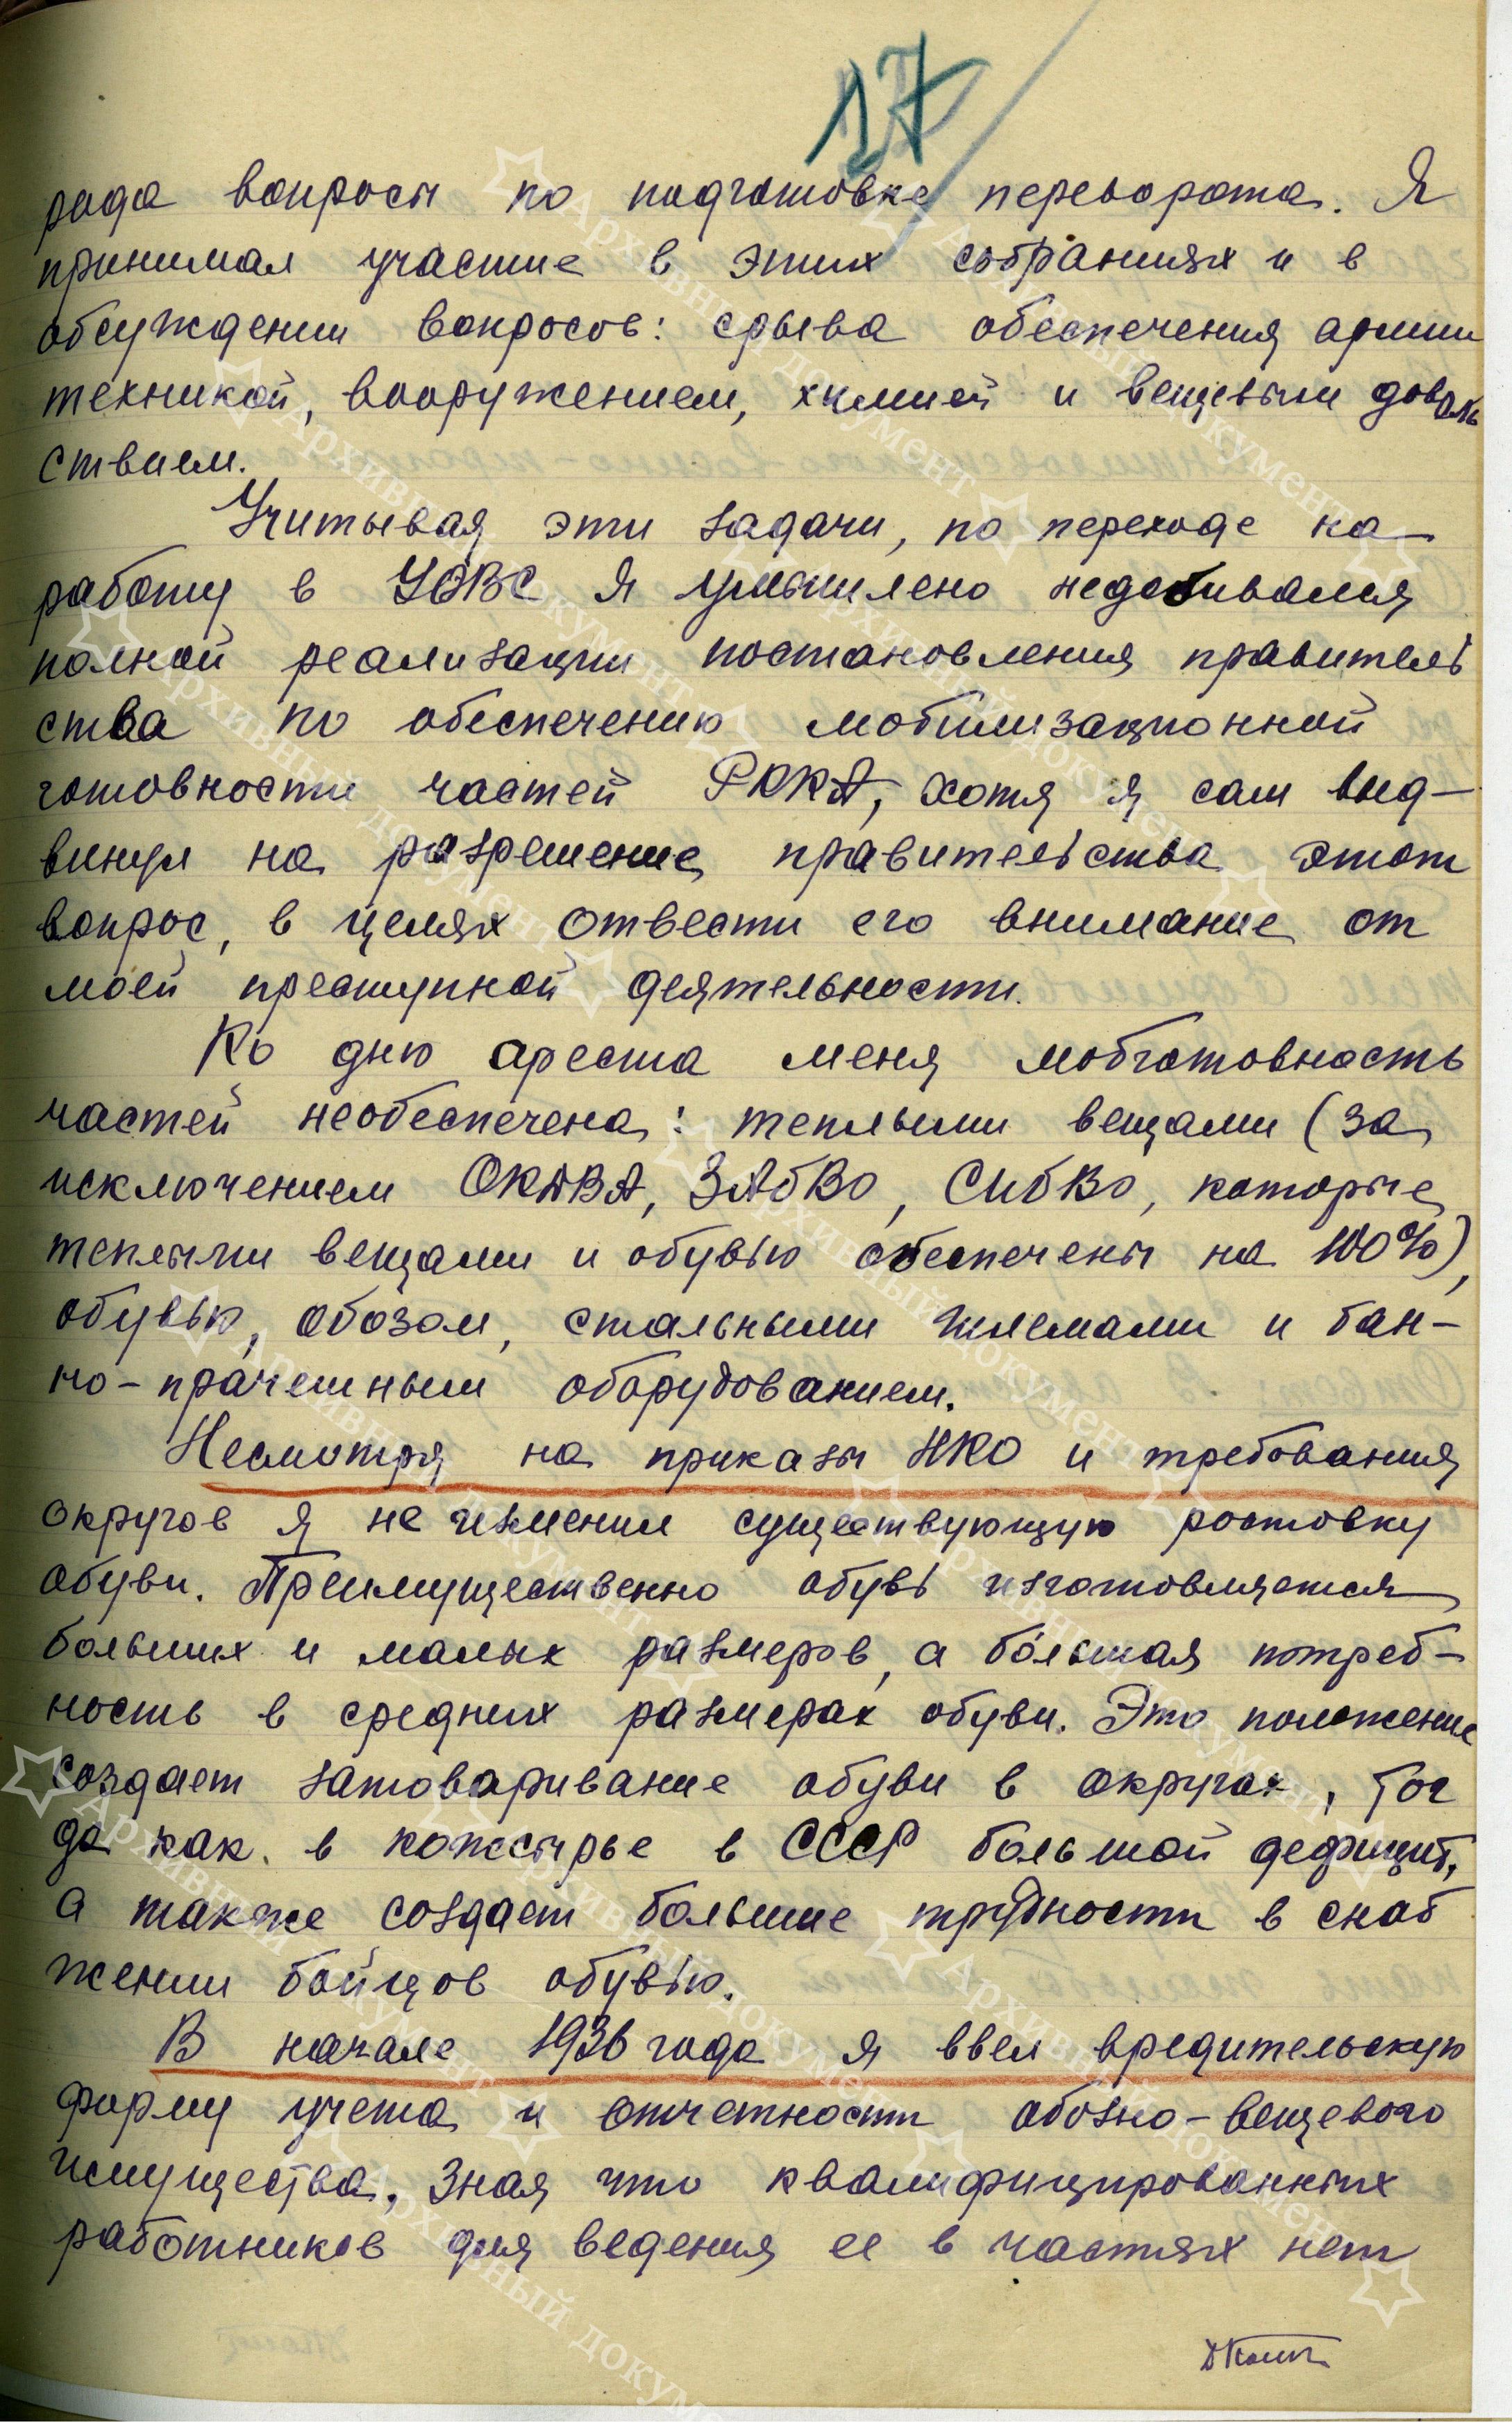 17
рода вопросы по подготовке переворота. Я
принимал участие в этих собраниях и в
обсуждении вопросов: срыва обеспечения армии
техникой, вооружением, химией и вещевым доволь
ствием.
Учитывая эти задачи, по переходе на
работу в УОВС я умышлено недобивался
полной реализации постановления правитель
ства по обеспечению мобилизационной
готовности частей РККА, хотя я сам выд-
винул на разрешение правительства этот
вопрос, в целях отвести его внимание от
моей преступной деятельности.
Ко дню ареста меня мобготовность
частей необеспечена: теплыми вещами (за
исключением ОКДВА, ЗАбВО, СибВО, которые
теплыми вещами и обувью обеспечены на 100%),
обувью, обозом, стальными шлемами и бан-
но-прачешным оборудованием.
Несмотря на приказы НКО и требования
округов я не изменил существующую ростовку
обуви. Преимущественно обувь изготовляется
больших и малых размеров, а бо́льшая потреб-
ность в средних размерах обуви. Это положение
создает затоваривание обуви в округах, тог
да как в кожсырье в СССР большой дефицит,
а также создает большие трудности в снаб
жении бойцов обувью.
В начале 1936 года я ввел вредительскую
форму учета и отчетности обозно-вещевого
имущества, зная что квалифицированных
работников для ведения ее в частях нет